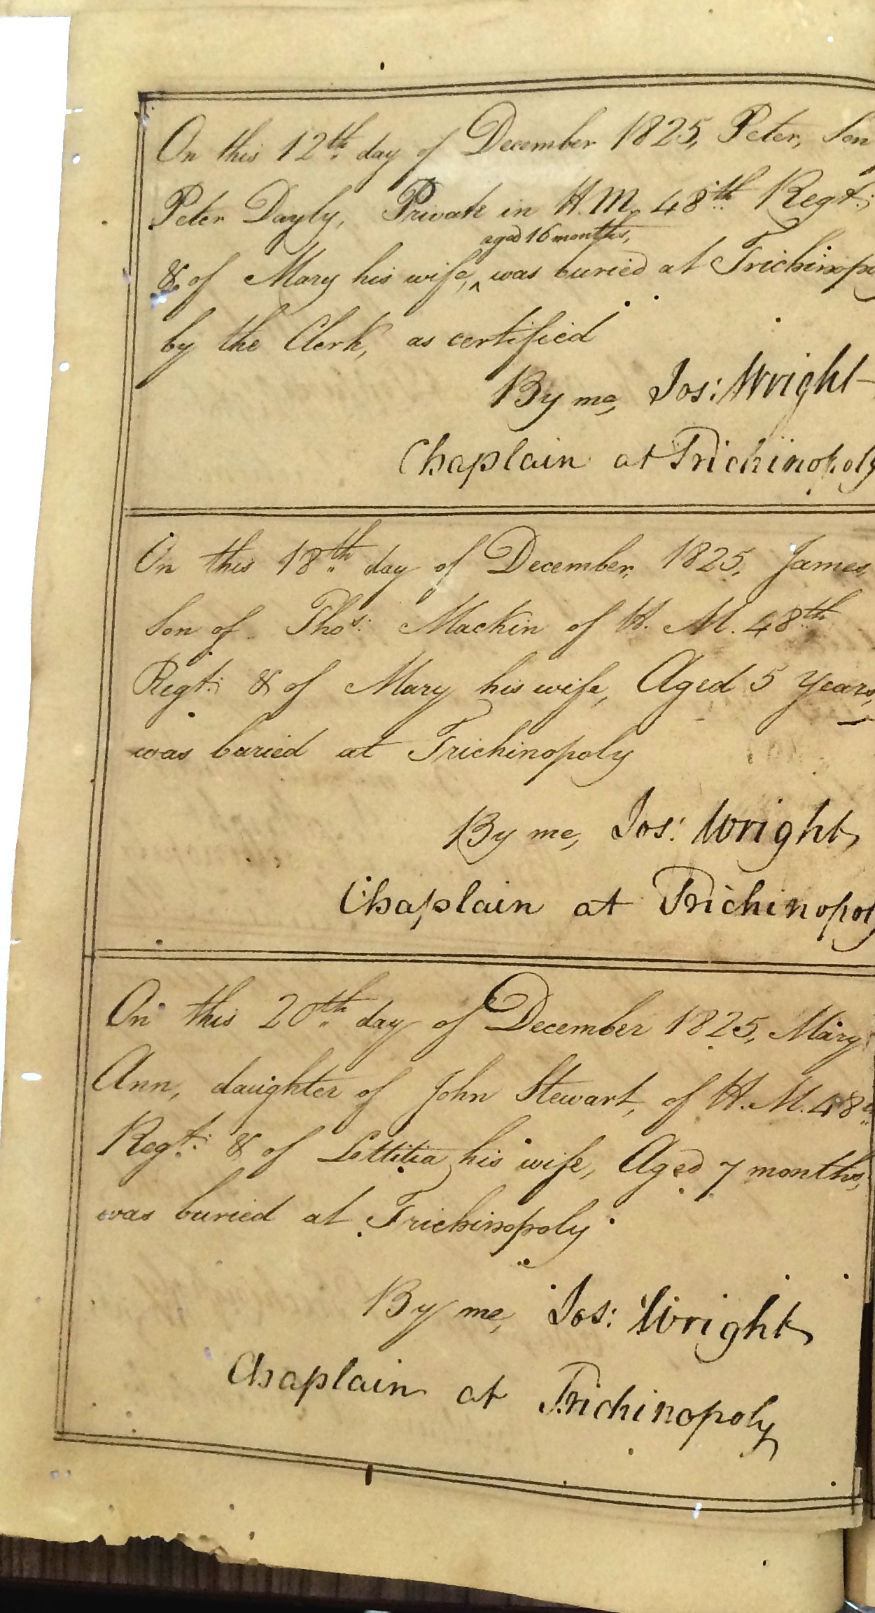 On this 12th day of December 1825, Peter, Son
Peter Dayly, Private in H. M. 48th Regt:
aged 16 months,
& of Mary his wife, ^ was buried at Trichinopo
by the Clerk, as certified
By me, Jos: Wright
Chaplain at Trichinopoly
On this 18th day of December, 1825, James,
Son of Thos: Mackin of H. M. 48th
Regt: & of Mary his wife, Aged 5 Years,
was buried at Trichinopoly
By me, Jos: Wright,
Chaplain at Trichinopoly
On this 20th day of December 1825, Mary
Ann, daughter of John Stewart, of H. M. 48th
Regt: & of Lettitia his wife, Aged 7 months,
was buried at Trichinopoly
By me, Jos: Wright,
Chaplain at Trichinopoly